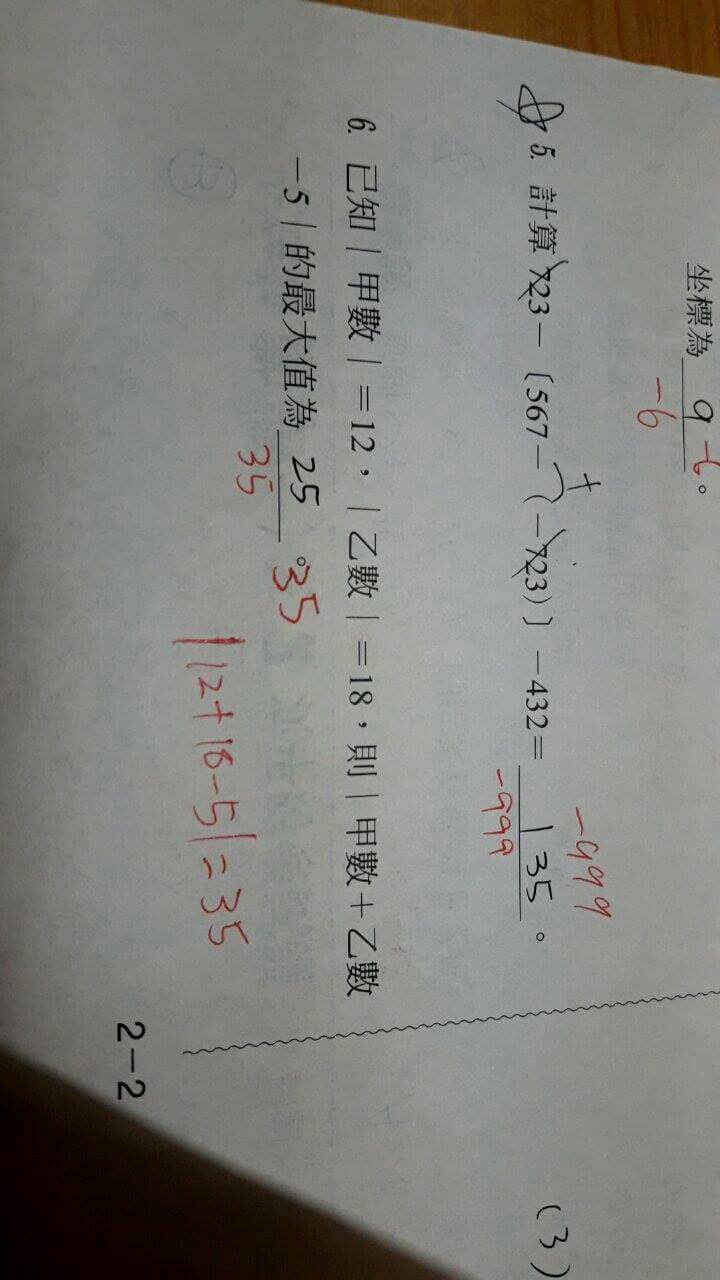 坐標為 9 -6 。
-6
5. 計算 723－〔567－（－723）〕－432＝ 135 。
+
-999
-999
6. 已知｜甲數｜＝12，｜乙數｜＝18，則｜甲數＋乙數
－5｜的最大值為 25 。35
35
|12+18-5|=35
2－2
(3)